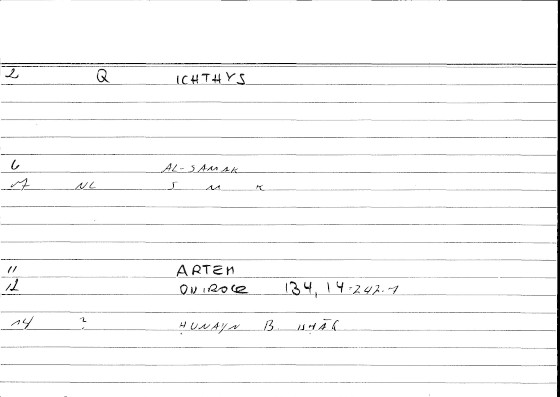 2 Q ICHTHYS
6 AL-SAMAK
07 NL S M K
11 ARTEM
12 ONIROCR 134, 14-242.1
14 ? ḤUNAYN B. ISḤĀQ